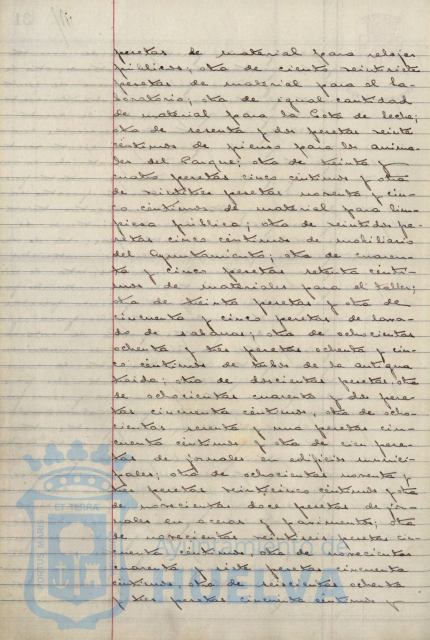 pesetas de material para relojes
públicos; otra de ciento veintisiete
pesetas de material para el la-
boratorio; otra de igual cantidad
de material para la Gota de leche;
otra de sesenta y dos pesetas veinte
céntimos de pienso para los anima-
les del Parque; otra de treinta y
cuatro pesetas cinco céntimos y otra
de veintitres pesetas noventa y cin-
co céntimos de material para lim-
pieza pública; otra de veintidos pe-
setas cinco céntimos de mobiliario
del Ayuntamiento; otra de cuaren-
ta y cinco pesetas setenta cénti-
mos de materiales para el taller;
otra de treinta pesetas y otra de
cincuenta y cinco pesetas de lava-
do de sabanas; otra de ochocientas
ochenta y tres pesetas ochenta y cin-
co céntimos de tubos de la antigua
traida; otra de doscientas pesetas otra
de ochocientas cuarenta y dos pese-
tas cincuenta céntimos, otra de ocho-
cientas sesenta y una pesetas cin-
cuenta céntimos y otra de cien pese-
tas de jornales en edificios munici-
pales; otra de ochocientas noventa y
tres pesetas veinticinco céntimos y otra
de novecientas doce pesetas de jor-
nales en aceras y pavimento; otra
de novecientas pesetas cin-
cuenta céntimos otra de novecientas
cuarenta y siete pesetas cincuenta
céntimos otra de seiscientas ochenta
y tres pesetas cincuenta céntimos y
PORTUS MARIS ET TERRA
Ayuntamiento de
HUELVA